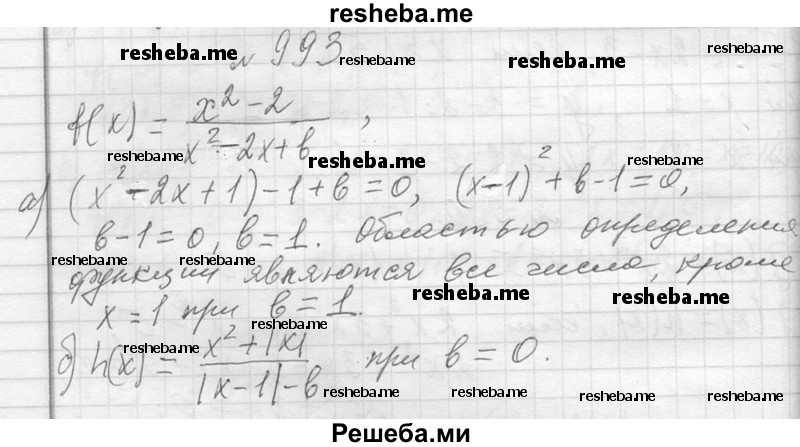 resheba.me
№ 993
resheba.me resheba.me resheba.me resheba.me
f(x) = (x² - 2) / (x² - 2x + b),
resheba.me resheba.me resheba.me
а) (x² - 2x + 1) - 1 + b = 0, (x-1)² + b - 1 = 0,
b - 1 = 0, b = 1. Областью определения
resheba.me resheba.me resheba.me
функции являются все числа, кроме
resheba.me resheba.me
x = 1 при b = 1.
resheba.me
б) h(x) = (x² + |x|) / (|x - 1| - b) при b = 0.
resheba.me
resheba.me resheba.me resheba.me resheba.me
Решеба.ми